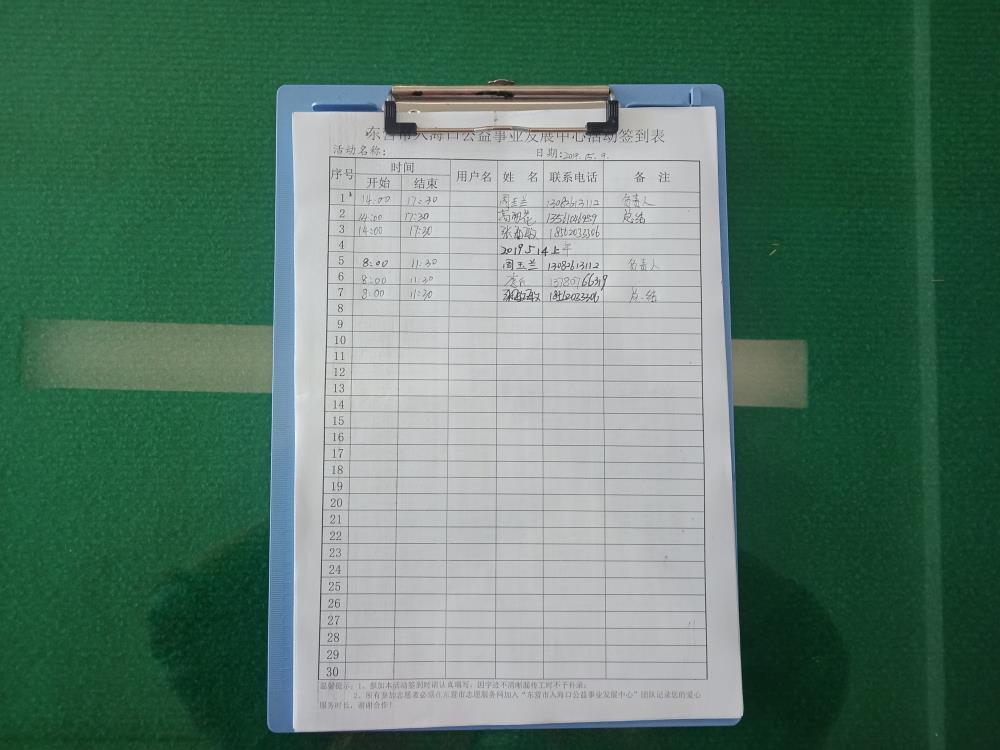 东营市入海口公益事业发展中心活动签到表
活动名称: 日期:2019.5.9.
序号 时间 用户名 姓 名 联系电话 备 注
开始 结束
1 14:00 17:30 周玉兰 13082613112 负责人
2 14:00 17:30 总结
3 14:00 17:30 18562033306
4 2019 5 14上午
5 8:00 11:30 周玉兰 13082613112 负责人
6 8:00 11:30
7 8:00 11:30 18562033306 总结
8
9
10
11
12
13
14
15
16
17
18
19
20
21
22
23
24
25
26
27
28
29
30
温馨提示:1、参加本活动签到时请认真填写,因字迹不清晰漏传工时不予补录;
2、所有参加志愿者必须在东营市志愿服务网加入“东营市入海口公益事业发展中心”团队记录您的爱心
服务时长,谢谢合作!